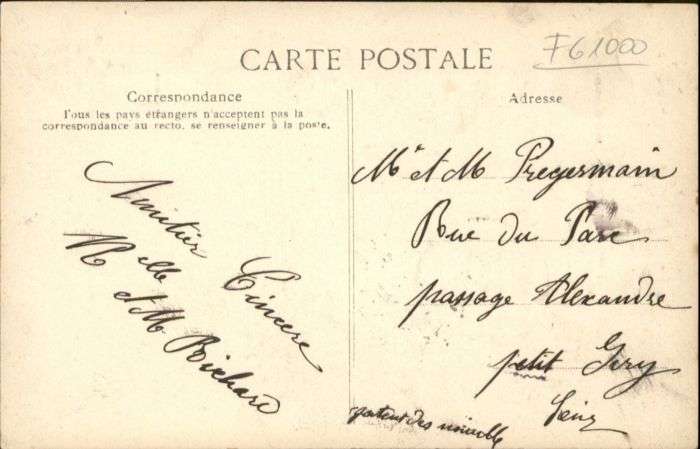 F61000
CARTE POSTALE
Correspondance
Tous les pays étrangers n'acceptent pas la
correspondance au recto, se renseigner à la poste.
Amitier Cincere
Melle et M Richard
Adresse
Me et M Pregermain
Rue du Parc
passage Alexandre
petit Ivry
Seine
des